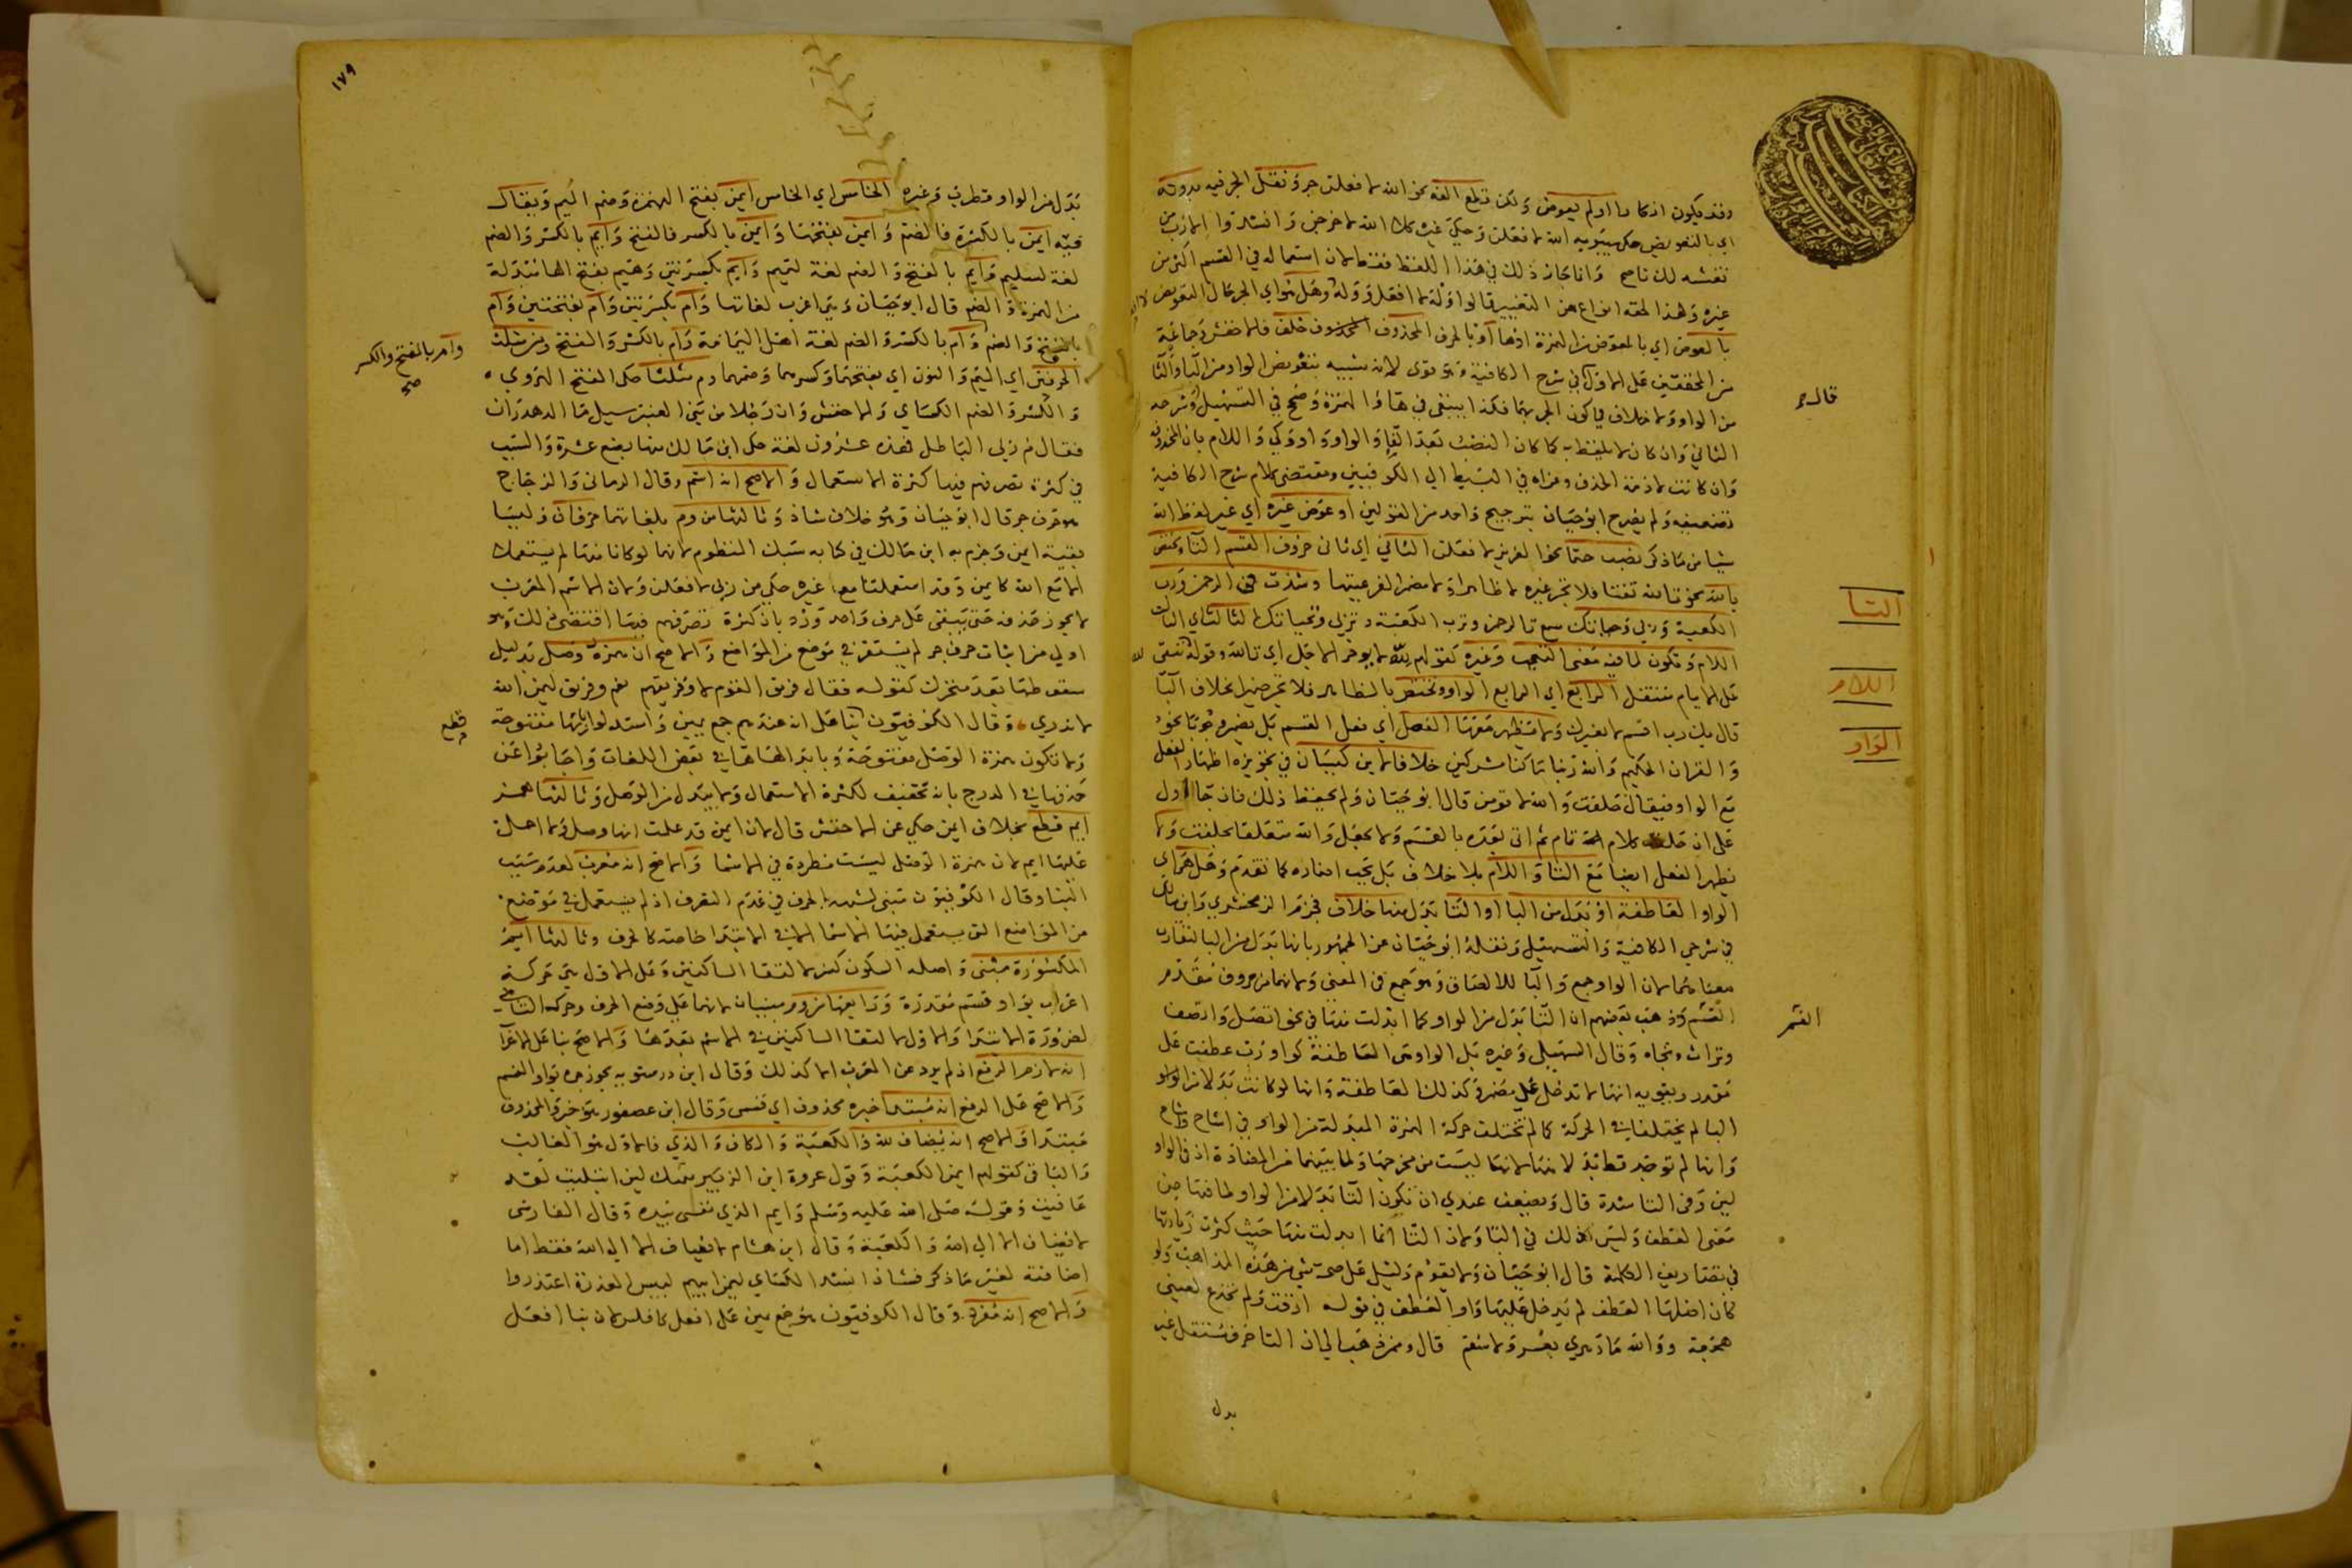 وقد يكون اذ كان اولم يعوض ولكن قطع الفه نحو الله لا فعلن جر ونقل الجر فيه بدونه
اي بالتعويض حكى سيبويه الله لا فعلن وحكى غيره كلا الله لا خرجن وانشدوا الا رب من
تغتشه لك ناصح وانما جاز ذلك في هذا اللفظ فقط لان استعماله في القسم اكثر من
غيره وهذا لحقه انواع من التغيير
بالعوض اي بالمعوض من الهمزة او بالحرف المحذوف خلف فالاخفش وجماعة
من المحققين على الاول في شرح الكافية وهو قوي لانه شبيه بتعويض الواو من البا والتا
من الواو ولا خلاف في كون الجر بهما فكذا ينبغي في ها والهمزة وصحح في التسهيل وشرحه
الثاني وان كان لا يلفظ به كما كان النصب بعد الفا والواو واو وكي واللام بان المحذوفة
وان كانت لازمة الحذف وعزاه في البسيط الى الكوفيين ومقتضى كلام شرح الكافية
تضعيفه ولم يصرح ابوحيان بترجيح واحد من القولين او عوض غيره اي غير لفظ الله
شيا من ما ذكر نصب حتما نحو العزيز لا فعلن الثاني اي ثاني حروف القسم التا وتختص
بالله نحو تالله تفتا فلا تجر غيره لا ظاهرا ولا مضمرا لفرعيتها وشذت في الرحمن ورب
الكعبة وربي وحياتك سمع تالرحمن وترب الكعبة وتربي وتحياتك الثالث اي الثالث
اللام وتكون لما فيه معنى التعجب وغيره كقولهم لله لا يوخر الاجل اي تالله وقوله لله تبقى
على الايام مشتمل الرابع اي الرابع الواو وتختص بالظاهر فلا تجر ضميرا بخلاف البا
قال بك رب اقسم لا بغيرك ولا يظهر معها الفعل اي فعل القسم بل يضمر وجوبا نحو
والقران الحكيم والله ربنا ما كنا مشركين خلافا لابن كيسان في تجويزه اظهار الفعل
مع الواو فيقال حلفت والله لا قومن قال ابوحيان ولم يحفظ ذلك فان جا اول
على ان حلفت كلام تام ثم اتى بعده بالقسم ولا يجعل والله متعلقا بحلفت ولا
يظهر الفعل ايضا مع التا واللام بلا خلاف بل يجب اضماره كما تقدم وهل هي اي
الواو العاطفة او بدل من البا او التا بدل منها خلاف فجزم الزمخشري وابن مالك
في شرحي الكافية والتسهيل ونقله ابوحيان عن الجمهور بانها بدل من البا لتقارب
معناهما لان الواو جمع والبا للالصاق وهو جمع في المعنى ولانهما من حروف مقدم
القسم وذهب بعضهم ان التا بدل من الواو كما ابدلت منها في نحو اتصل واتصف
وتراث وتجاه وقال السهيلي وغيره بل الواو هي العاطفة كواو رب عطفت على
مقدر ويقويه انها لا تدخل على مضمر وكذلك العاطفة وانها لو كانت بدلا من الواو
البا لم يختلفا في الحركة كما لم تختلف حركة الهمزة المبدلة من الواو في اشاح وشاح
وانها لم توجد قط بدلا منها لانها ليست من مخرجها ولما بينهما من المضادة اذ في الواو
لين وفي التا شدة قال ويضعف عندي ان تكون التا بدلا من الواو لما فيها من
معنى العطف وليس ذلك في التا ولان التا انما ابدلت منها حيث كثرت زيادتها
في تصاريف الكلمة قال ابوحيان ولا يقوم دليل على صحة شي من هذه المذاهب ولو
كان اصلها العطف لم يدخل عليها واو العطف في قوله ارقت ولم تخدع لعيني
هجعة ووالله ما دهري بعسر ولا سقم قال ومن ذهب الى ان التا حرف مستقل غير
بدل
قالا جر
التا
اللام
الواو
القسم
١٧٩
بدل من الواو قطرب وغيره الخامس اي الخامس ايمن بفتح الهمزة وضم الميم ويقال
فيه ايمن بالكسرة فالضم وايمن بفتحهما وايمن بالكسر فالفتح وايم بالكسر والضم
لغة لسليم وايم بالفتح والضم لغة لتميم وايم بكسرتين وهيم بفتح الها مبدلة
من الهمزة والضم قال ابوحيان وهي اغرب لغاتها وام بكسرتين وام بفتحتين وام
بالفتح والضم وام بالكسر والضم لغة اهل اليمامة وام بالكسر والفتح ومن مثلث
الحرفين اي الميم والنون اي بفتحهما وكسرهما وضمهما وم مثلثا حكى الفتح الهروي
والكسر والضم الكساي والاخفش وان رجلا من بني العنبر سيل ما الدهدران
فقال م ربي الباطل فهذه عشرون لغة حكى ابن مالك منها بضع عشرة والسبب
في كثرة تصرفهم فيها كثرة الاستعمال والاصح انه اسم وقال الرماني والزجاج
حرف جر قال ابوحيان وهو خلاف شاذ وثالثها من وم بلغاتهما حرفان وليسا
بقية ايمن وجزم به ابن مالك في كتابه سبك المنظوم لانهما لو كانا منها لم يستعملا
الا مع الله كايمن وقد استعملتا مع غيره حكي من ربي لا فعلن ولان الاسم المعرب
لا يجوز حذفه حتى يبقى على حرف واحد ورد بان كثرة تصرفهم فيها اقتضى ذلك وهو
اولى من اثبات حرف جر لم يستقر في موضع من المواضع والاصح ان همزة وصل بدليل
سقوطها بعد متحرك كقوله فقال فريق القوم لا وفريقهم نعم وفريق ليمن الله
لا ندري وقال الكوفيون قطع بنا على انه عندهم جمع يمين واستدلوا بانها مفتوحة
ولا تكون همزة الوصل مفتوحة وبابدالها هاء في بعض اللغات واجابوا عن
حذفها في الدرج بانه تخفيف لكثرة الاستعمال ولا يبدل من الوصل وثالثها همز
ايم قطع بخلاف ايمن حكي عن الاخفش قال لان ايمن قد علمت انها وصل ولا احمل
عليها ايم لان همزة الوصل ليست مطردة في الاسما والاصح انه معرب لعدم سبب
البنا وقال الكوفيون مبني لشبهه الحرف في عدم التصرف اذ لم يستعمل في موضع
من المواضع التي يستعمل فيها الاسما الا في الابتدا خاصة كالحرف وثالثها ايم
المكسورة مبنى واصله السكون كسر لالتقا الساكنين وعلى الاول هي حركة
اعراب بواو قسم مقدرة ورابعها من وم مبنيان لانهما على وضع الحرف وحركة الثاني
لضرورة الابتدا والاول لالتقا الساكنين في الاسم بعدها والاصح بنا على الاعراب
انه لازم الرفع اذ لم يرد عن العرب الا كذلك وقال ابن درستويه يجوز جره بواو القسم
والاصح على الرفع انه مبتدا خبره محذوف اي قسمي وقال ابن عصفور هو خبر والمحذوف
مبتدا والاصح انه يضاف لله والكعبة والكاف والذي فالاول هو الغالب
والباقي كقولهم ايمن الكعبة وقول عروة ابن الزبير ليمنك لين ابتليت لقد
عافيت وقوله صلى الله عليه وسلم وايم الذي نفسي بيده وقال الفارسي
لا يضاف الا الى الله والكعبة وقال ابن هشام لا يضاف الا الى الله فقط اما
اضافته لغير ما ذكر فشاذ انشد الكساي ليمن ابيهم لبيس العذرة اعتذروا
والاصح انه مفرد وقال الكوفيون هو جمع يمين على افعل كافلس لان بنا افعل
وام بالفتح والكسر
صح
قطع